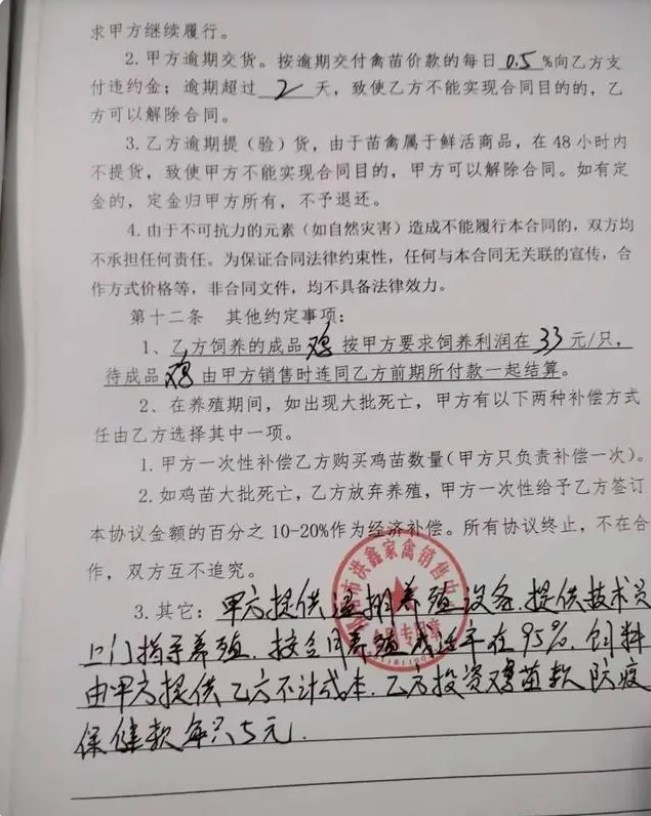 求甲方继续履行。
2.甲方逾期交货。按逾期交付禽苗价款的每日0.5%向乙方支
付违约金；逾期超过2天，致使乙方不能实现合同目的的，乙
方可以解除合同。
3.乙方逾期提（验）货，由于苗禽属于鲜活商品，在48小时内
不提货，致使甲方不能实现合同目的，甲方可以解除合同。如有定
金的，定金归甲方所有，不予退还。
4.由于不可抗力的元素（如自然灾害）造成不能履行本合同的，双方均
不承担任何责任。为保证合同法律约束性，任何与本合同无关联的宣传，合
作方式价格等，非合同文件，均不具备法律效力。
第十二条 其他约定事项：
1、乙方饲养的成品鸡按甲方要求饲养利润在33元/只，
待成品鸡由甲方销售时连同乙方前期所付款一起结算。
2、在养殖期间，如出现大批死亡，甲方有以下两种补偿方式
任由乙方选择其中一项。
1.甲方一次性补偿乙方购买鸡苗数量（甲方只负责补偿一次）。
2.如鸡苗大批死亡，乙方放弃养殖，甲方一次性给予乙方签订
本协议金额的百分之10-20%作为经济补偿。所有协议终止，不在合
作，双方互不追究。
3.其它：甲方提供温棚养殖设备.提供技术员
上门指导养殖.按合同养殖成活率在95%.饲料
由甲方提供乙方不计成本.乙方投资鸡苗款防疫
保健款每只5元.
市洪鑫家禽销售中
专用章